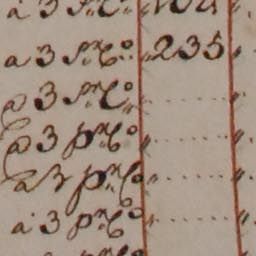 a 3 p.r C.o
a 3 p.r C.o „ 235 „
a 3 p.r C.o „ ........ „
a 3 p.r C.o „ ........ „
a 3 p.r C.o „ ........ „
a 3 p.r C.o „ ........ „